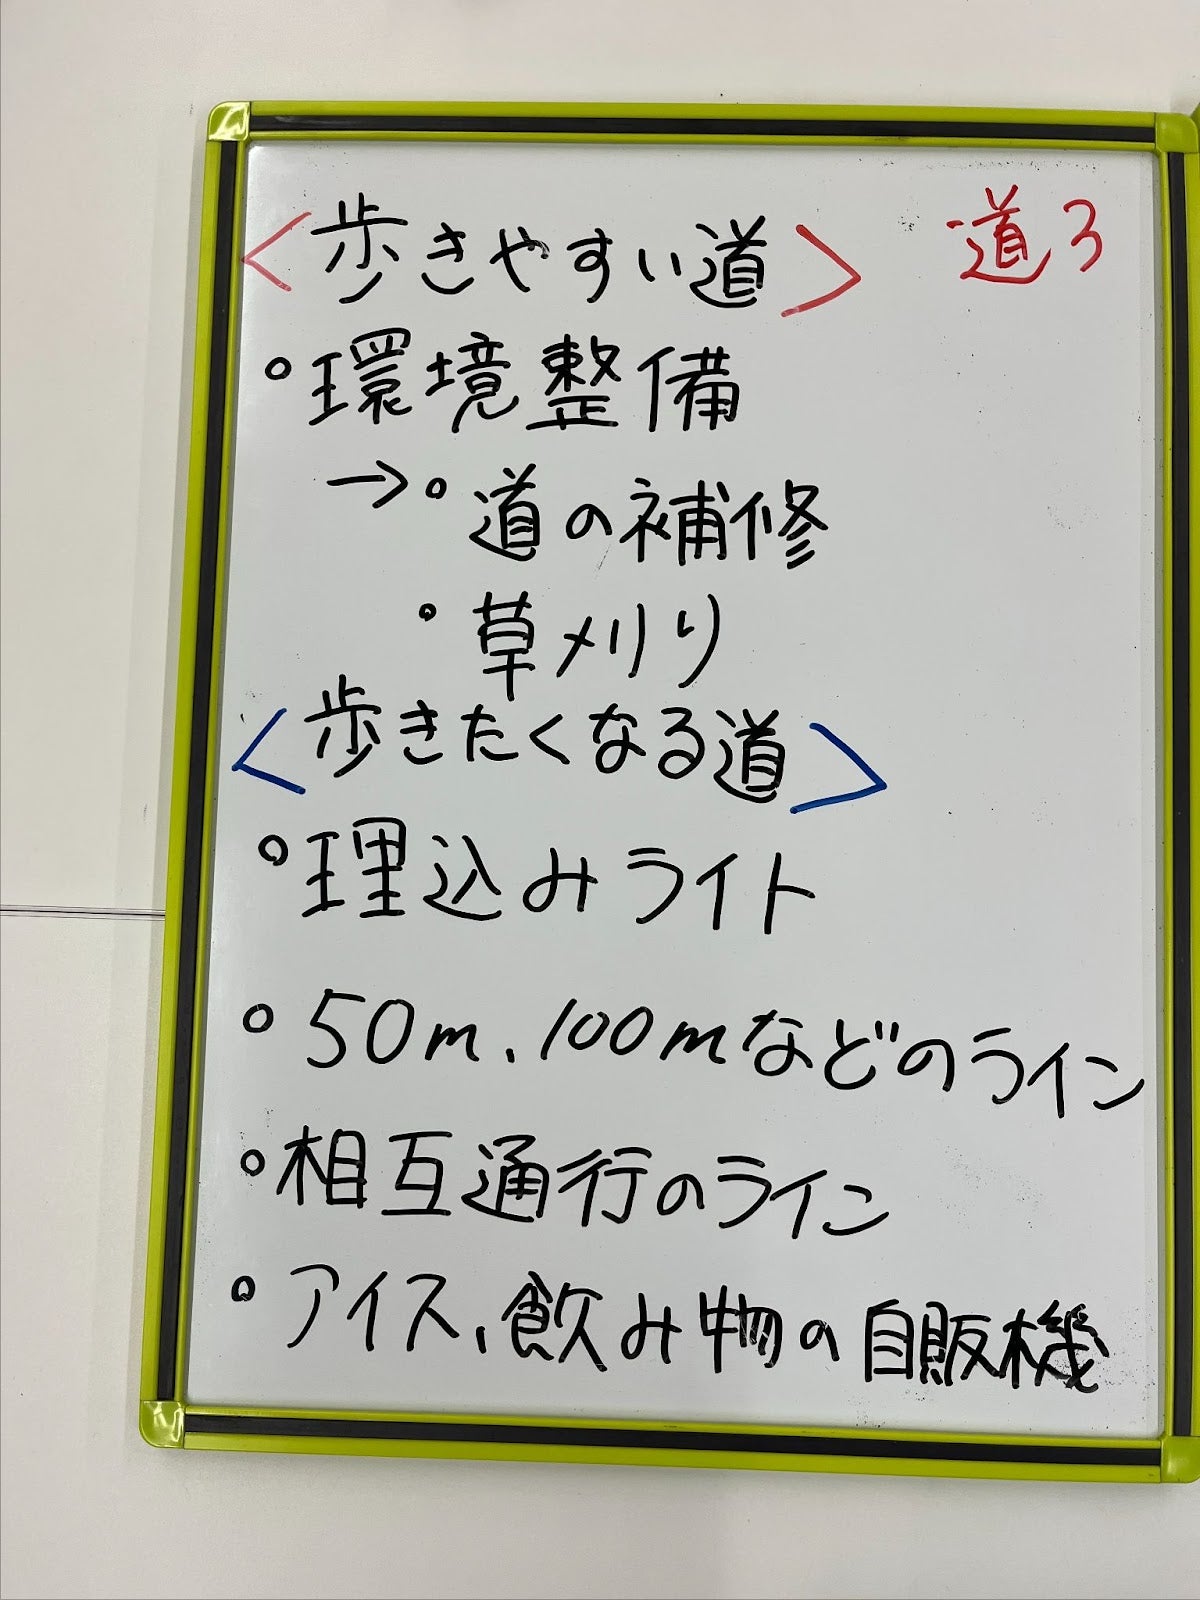 <歩きやすい道> 道3
◦環境整備
→◦道の補修
◦草刈り
<歩きたくなる道>
◦埋込みライト
◦50m、100mなどのライン
◦相互通行のライン
◦アイス、飲み物の自販機